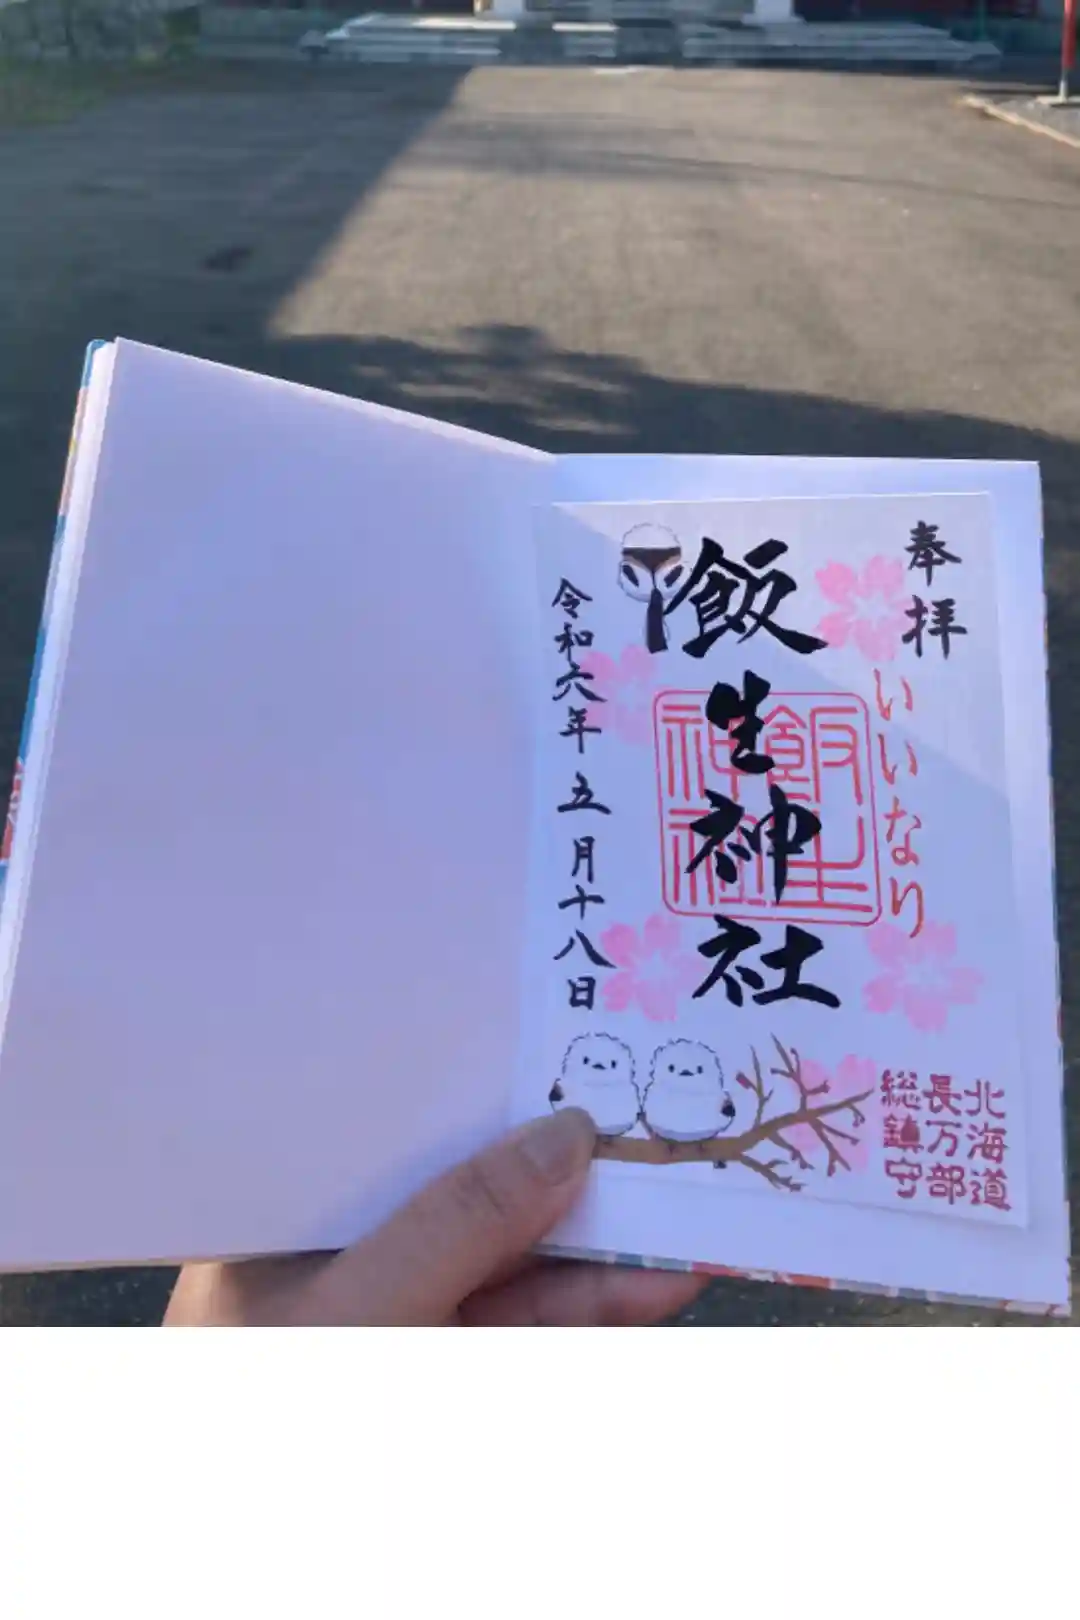 奉拝
いいなり
飯生神社
飯生神社
令和六年五月十八日
北海道
長万部
総鎮守